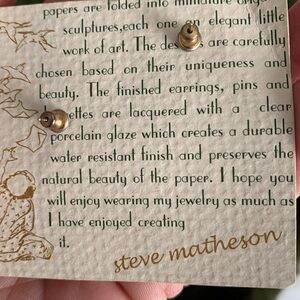 papers are folded into miniature
sculptures, each one an elegant little
work of art. The are carefully
chosen based on their uniqueness and
beauty. The finished earrings, pins and
are lacquered with a clear
porcelain glaze which creates a durable
water resistant finish and preserves the
natural beauty of the paper. I hope you
will enjoy wearing my jewelry as much as
I have enjoyed creating
it.
steve matheson